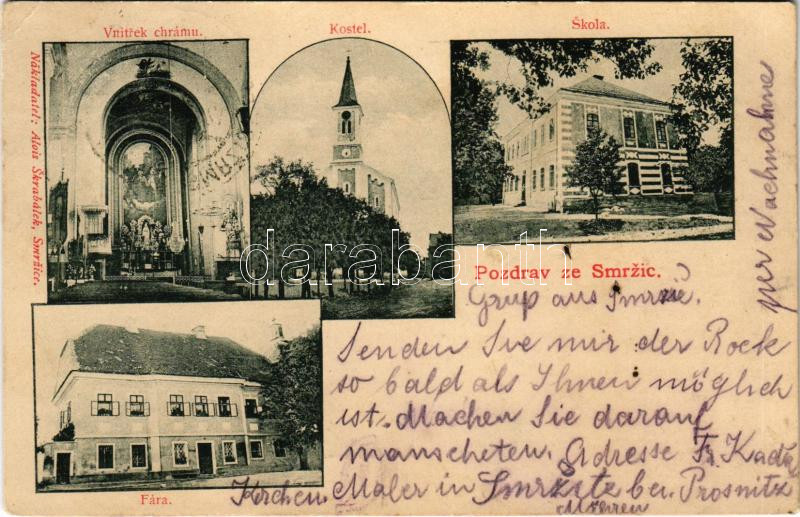 Vnitřek chrámu.
Kostel.
Škola.
Nákladatel: Alois Škrabálek, Smržice.
per Nachnahme
darabanth
Pozdrav ze Smržic.
Grup aus Smrzič.
Senden Sie mir der Rock
so bald als Ihnen möglich
ist. Machen Sie darauf
manscheten. Adresse Fr. Kadl
Fára.
Kirchen. Maler in Smržitz bei Prosnitz
Mähren